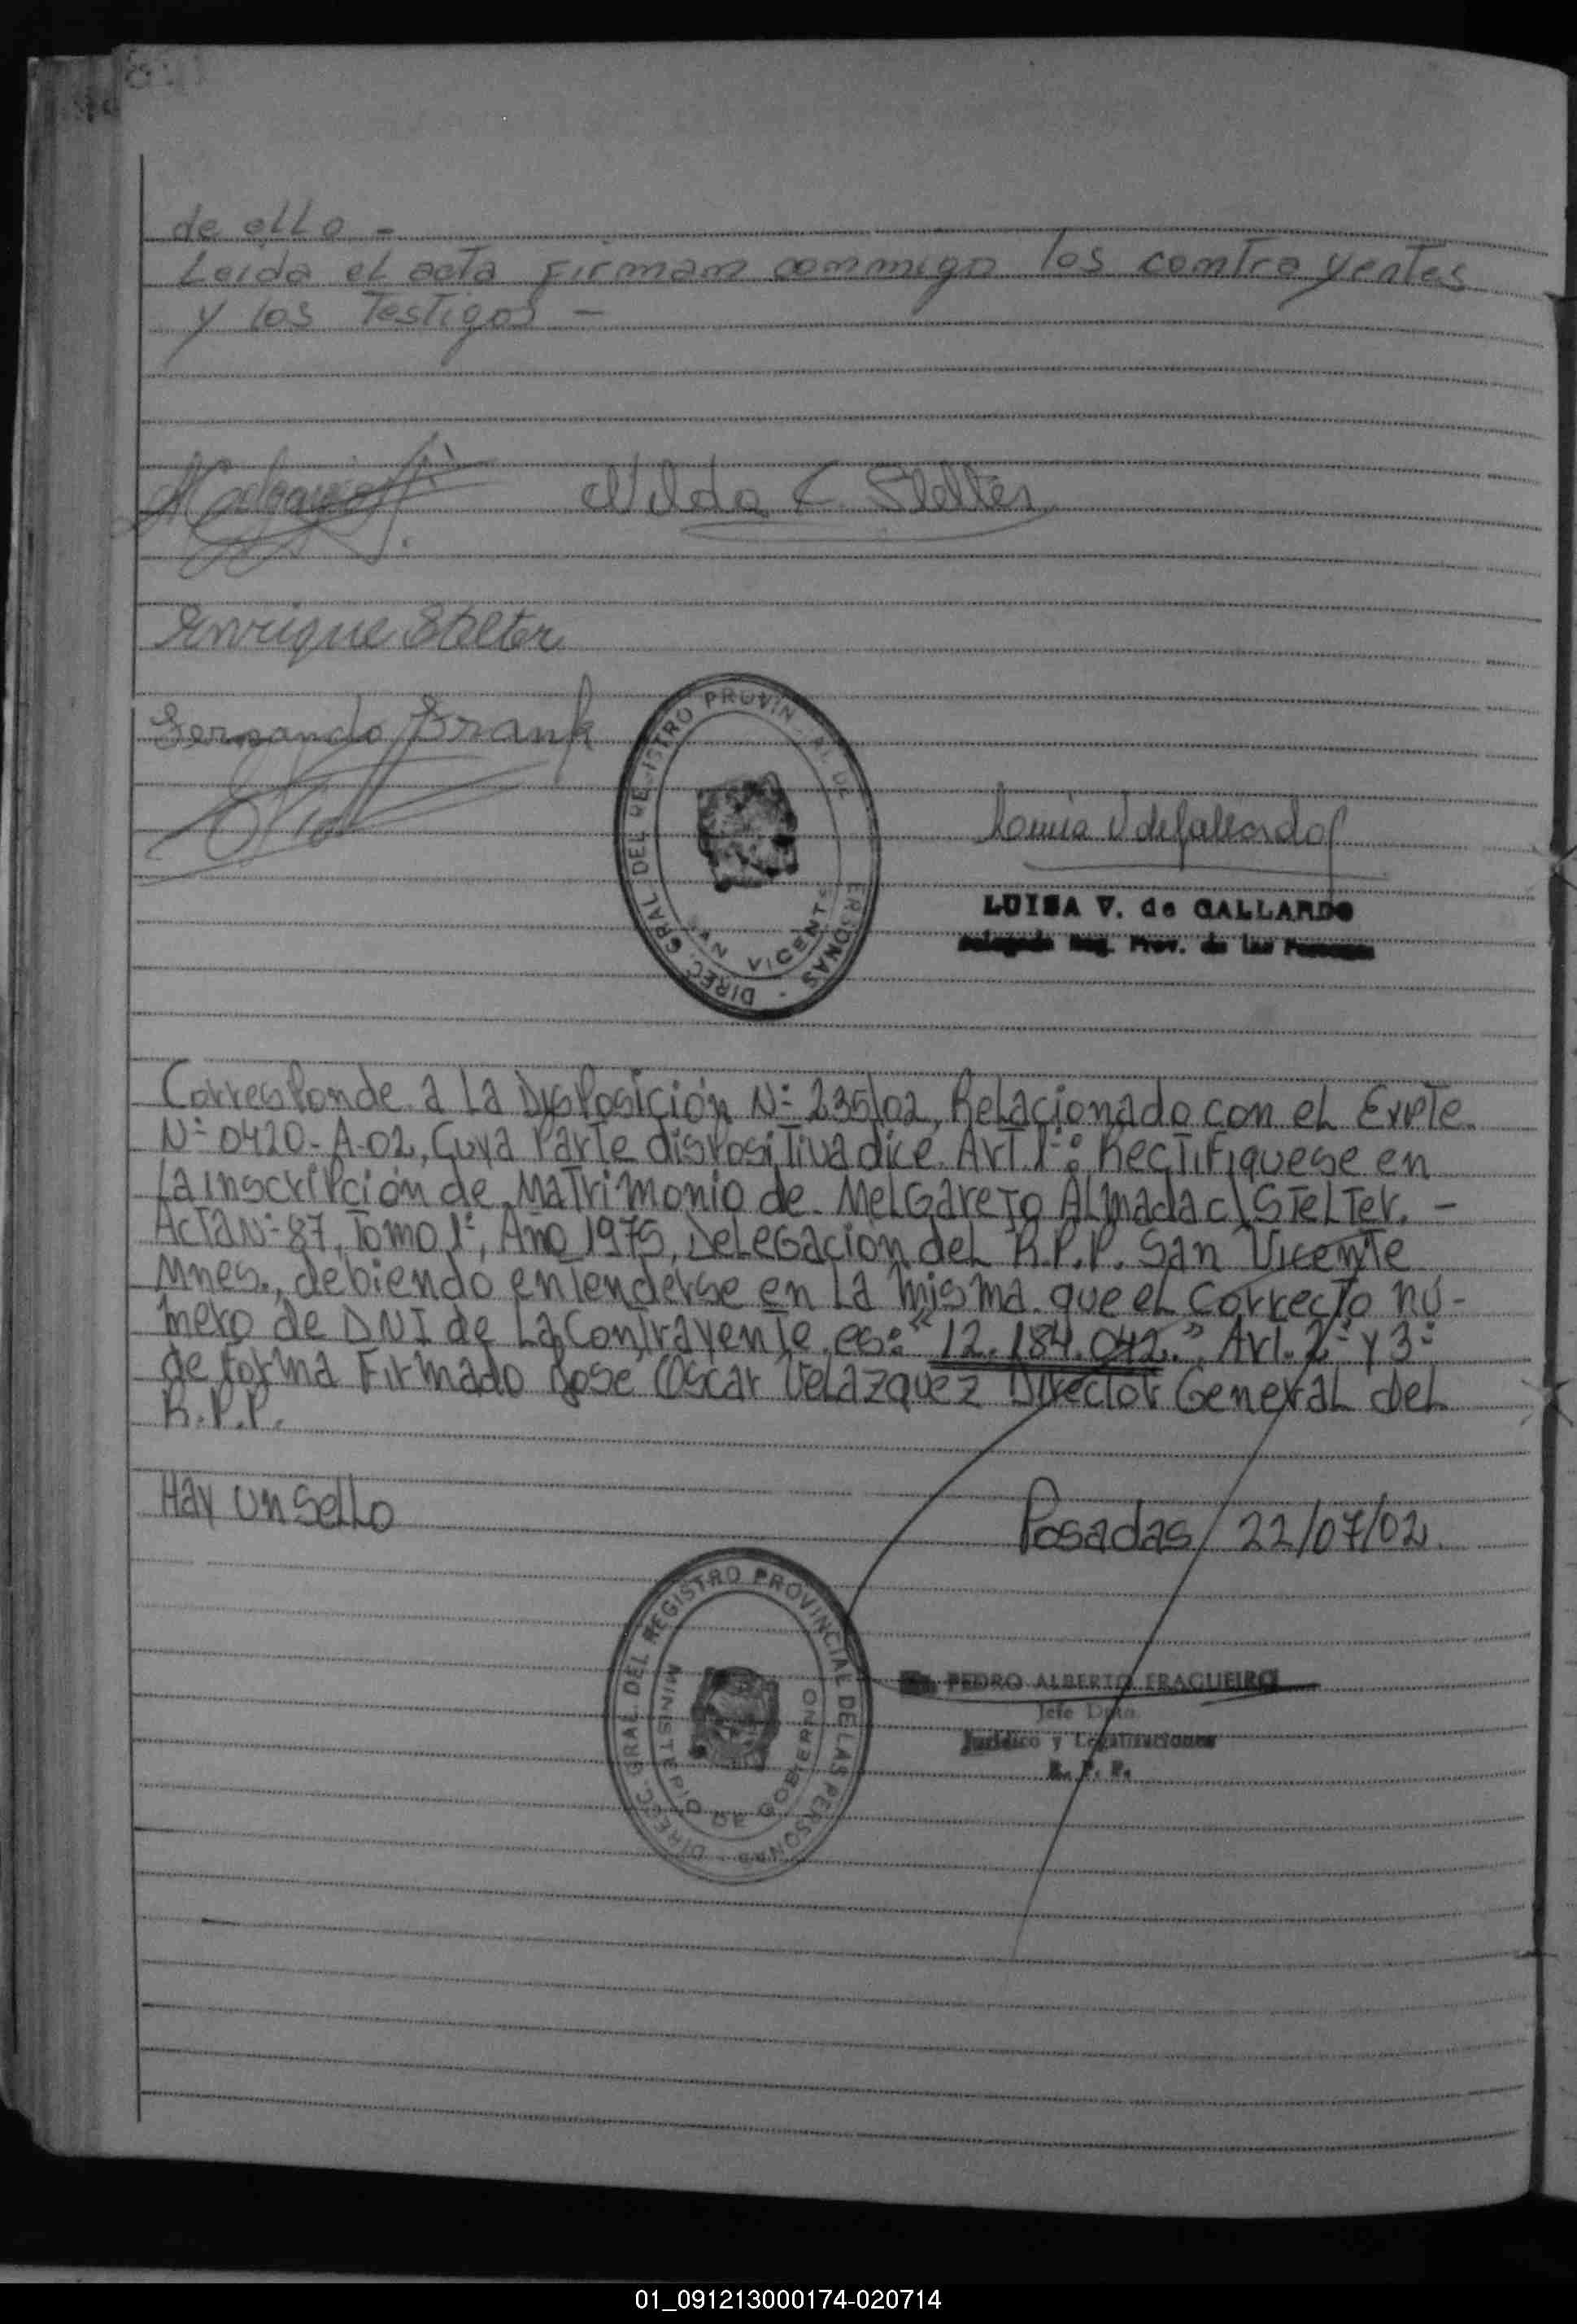 de ello -
Leida el acta firmam commigo los contrayentes
y los Testigos -
Nilda E. Stelter
Enrique Stelter
Fernando Frank
DIREC. GRAL DEL REGISTRO PROVINCIAL DE PERSONAS -
SAN VICENTE
LUISA V. de GALLARDO
Delegada Reg. Prov. de las Personas
Corresponde a La Disposición N° 235/02, Relacionado con el Expte.
N° 0420-A-02, Cuya Parte dispositiva dice. Art. 1°: Rectifiquese en
La inscripción de Matrimonio de Melgarejo Almada c/ Stelter. -
Acta N° 87, Tomo 1°, Año 1975, Delegacion del R.P.P. San Vicente
Mnes., debiendo entenderse en La misma que el correcto nú-
mero de DNI de La Contrayente es: "12.184.042." Art. 2° y 3°
de forma Firmado Jose Oscar Velazquez Director General del
R.P.P.
Hay un sello
Posadas, 22/07/02.
DIRECC. GRAL DEL REGISTRO PROVINCIAL DE LAS PERSONAS -
MINISTERIO DE GOBIERNO
PEDRO ALBERTO FRAGUEIRO
Jefe Dpto.
Jurídico y Legalizaciones
R. P. P.
01_091213000174-020714